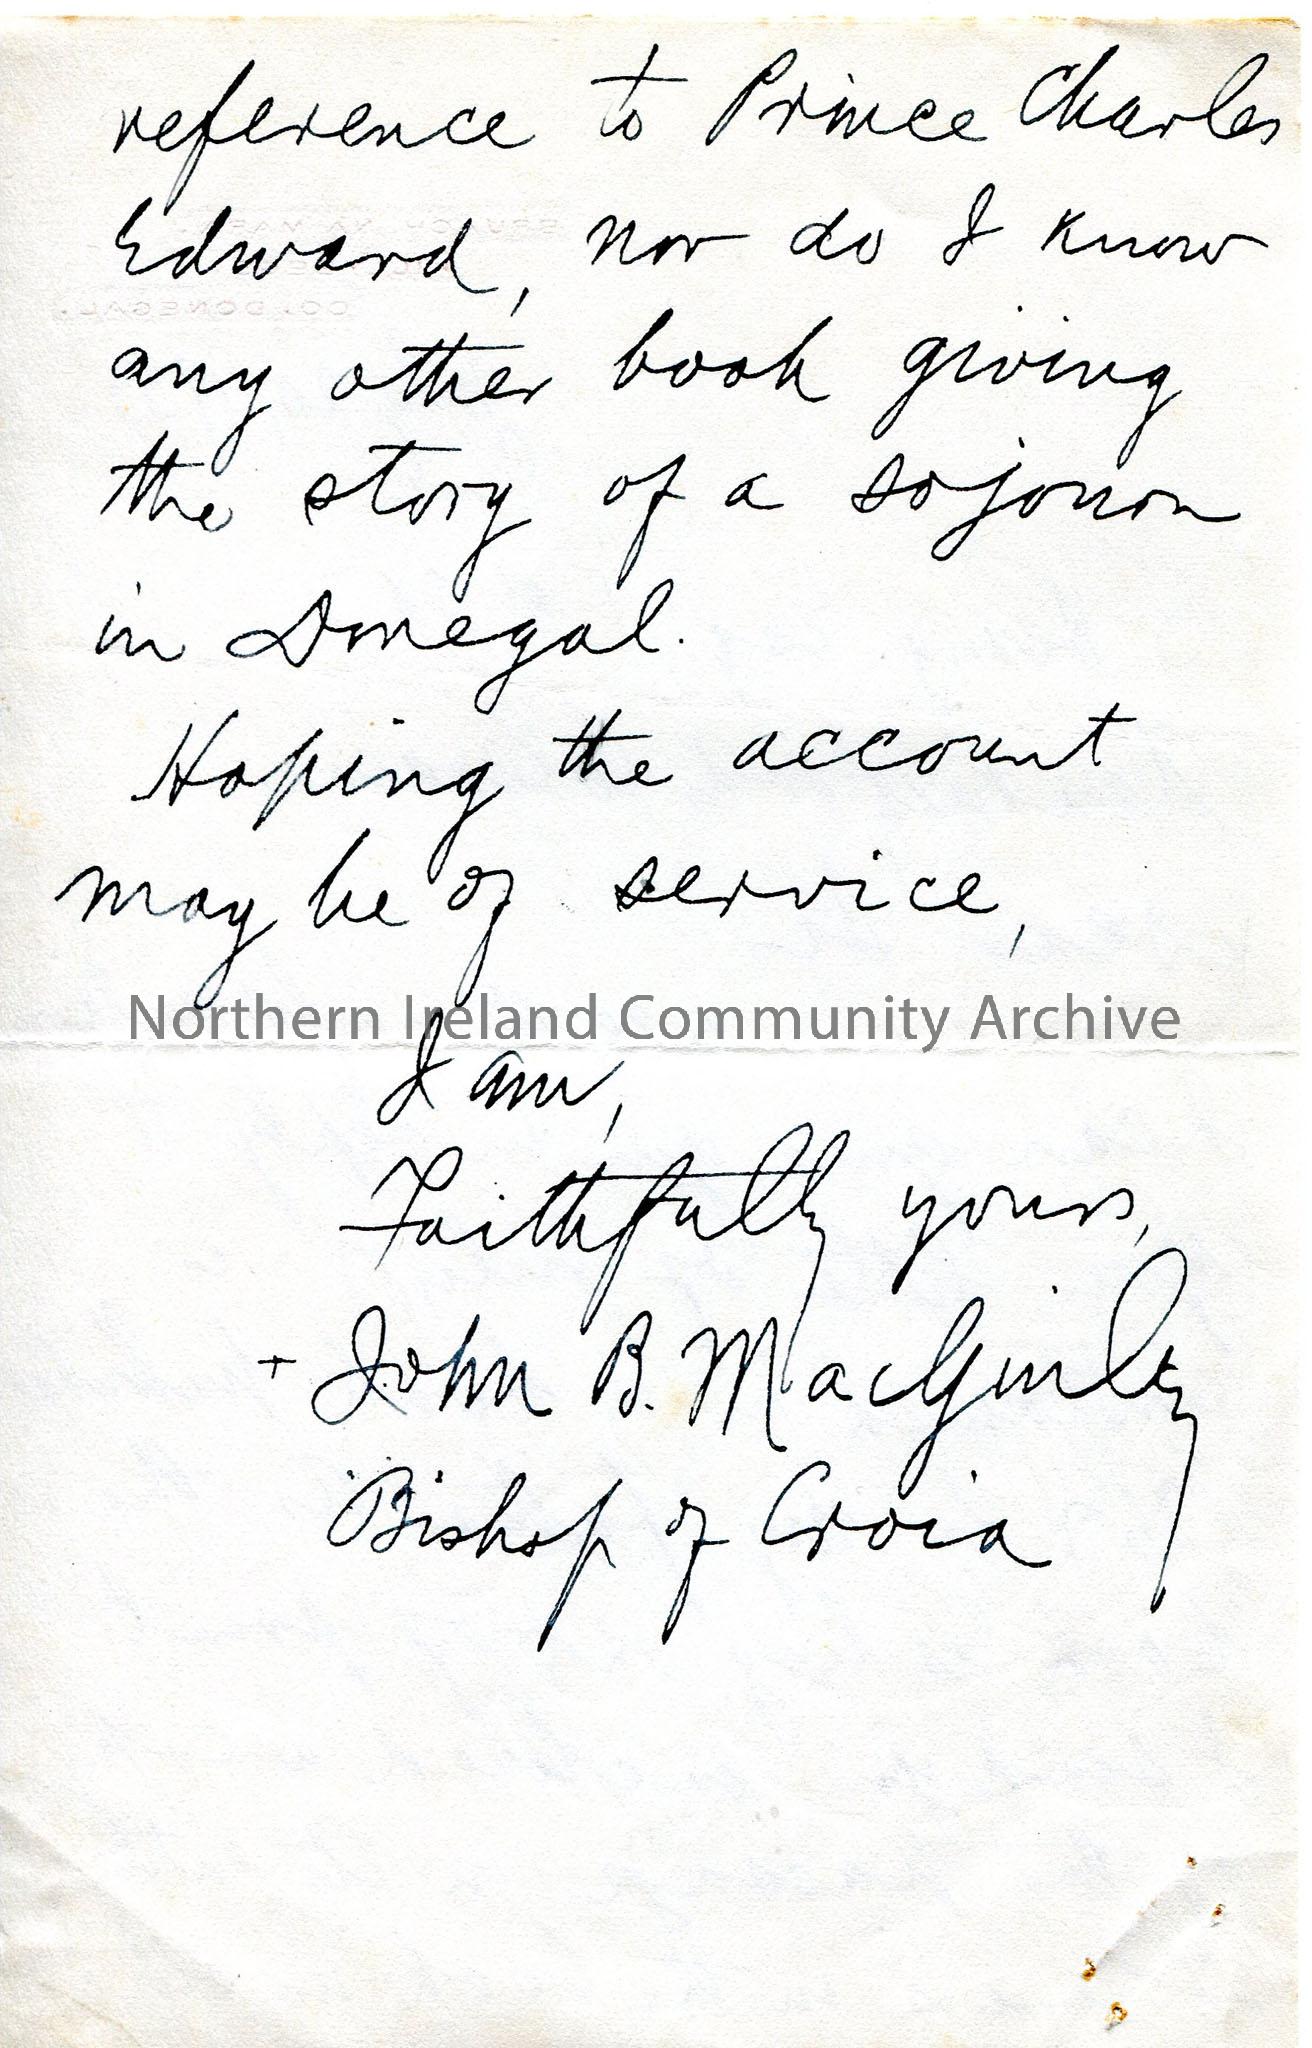 reference to Prince Charles
Edward, nor do I know
any other book giving
the story of a sojourn
in Donegal.
Hoping the account
may be of service,
Northern Ireland Community Archive
I am,
Faithfully yours,
+ John B. MacGinley
Bishop of Croia